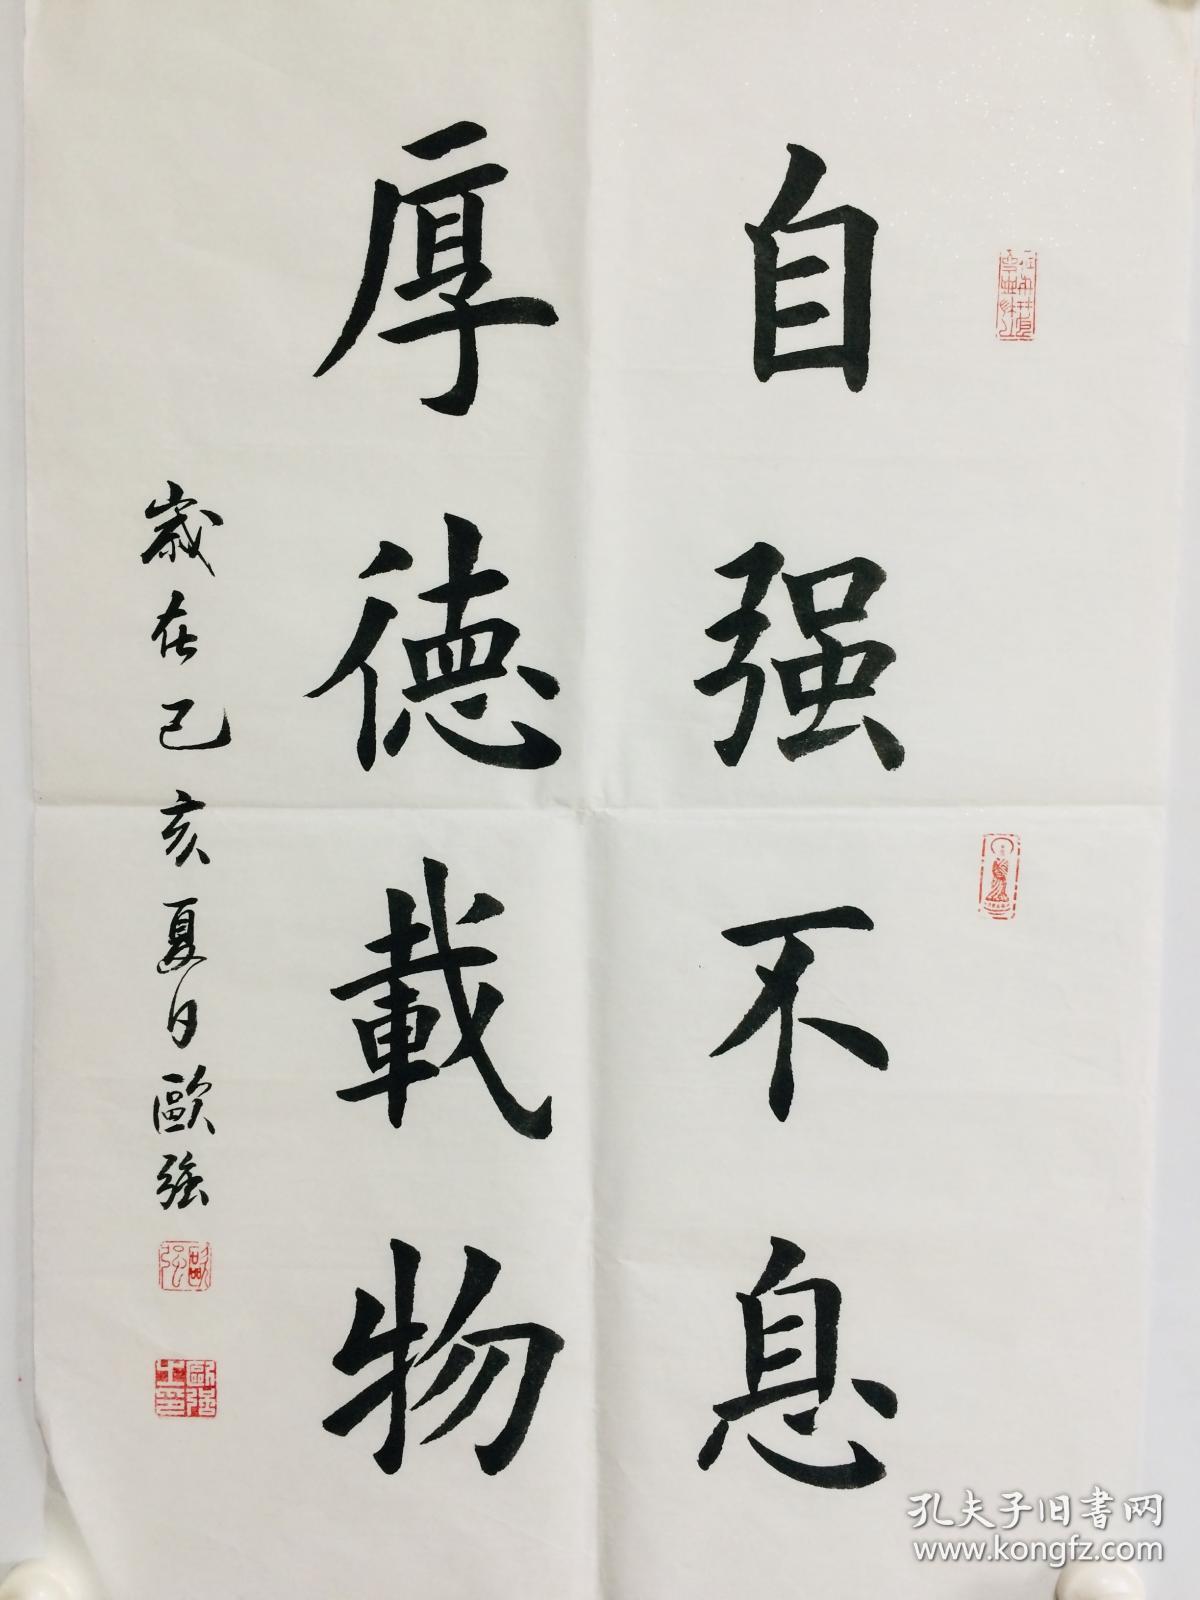 自强不息
厚德載物
歲在己亥夏日歐強
歐强
歐强之印
孔夫子旧書网
www.kongfz.com